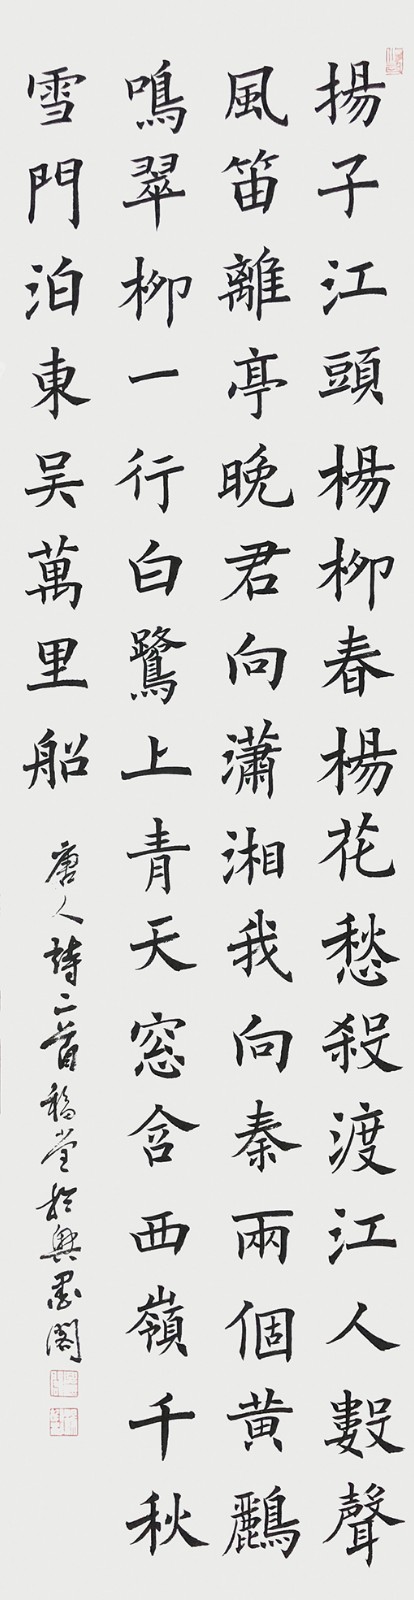 揚子江頭楊柳春楊花愁殺渡江人數聲
風笛離亭晚君向瀟湘我向秦兩個黃鸝
鳴翠柳一行白鷺上青天窓含西嶺千秋
雪門泊東吴萬里船
唐人詩二首稿堂於興墨閣